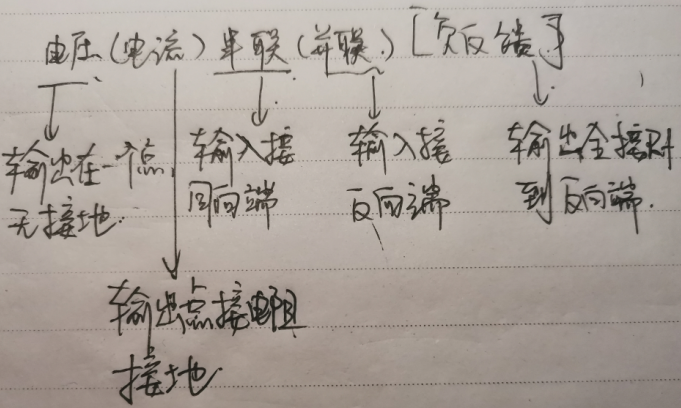 电压(电流)串联(并联)[负反馈]
输出在一个点,
无接地.
输入接
同向端
输入接
反向端
输出全接Rf
到反向端.
输出点接电阻
接地.